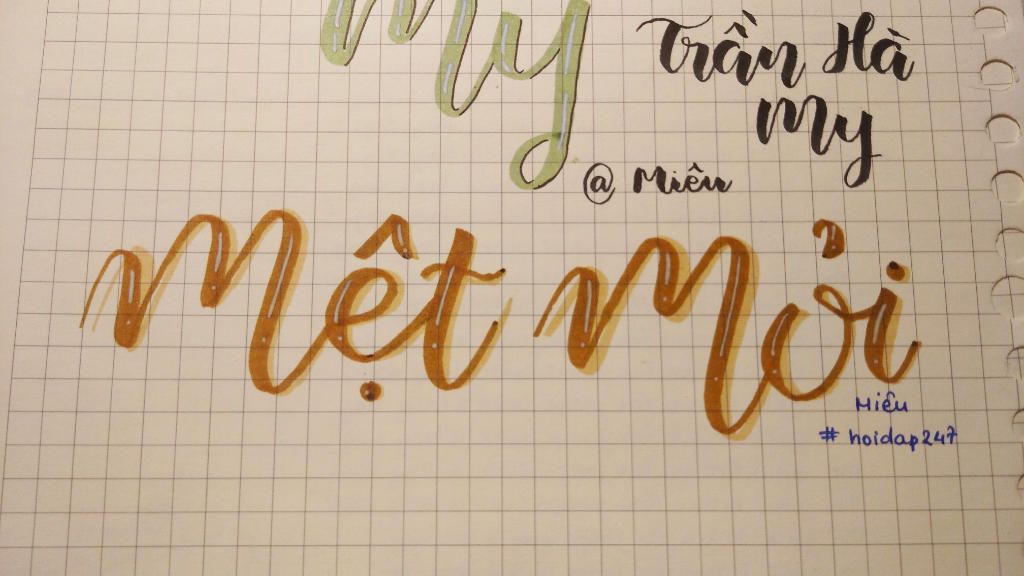 My
Trần Hà
My
@ Miêu
Mệt Mỏi
Miêu
# hoidap247